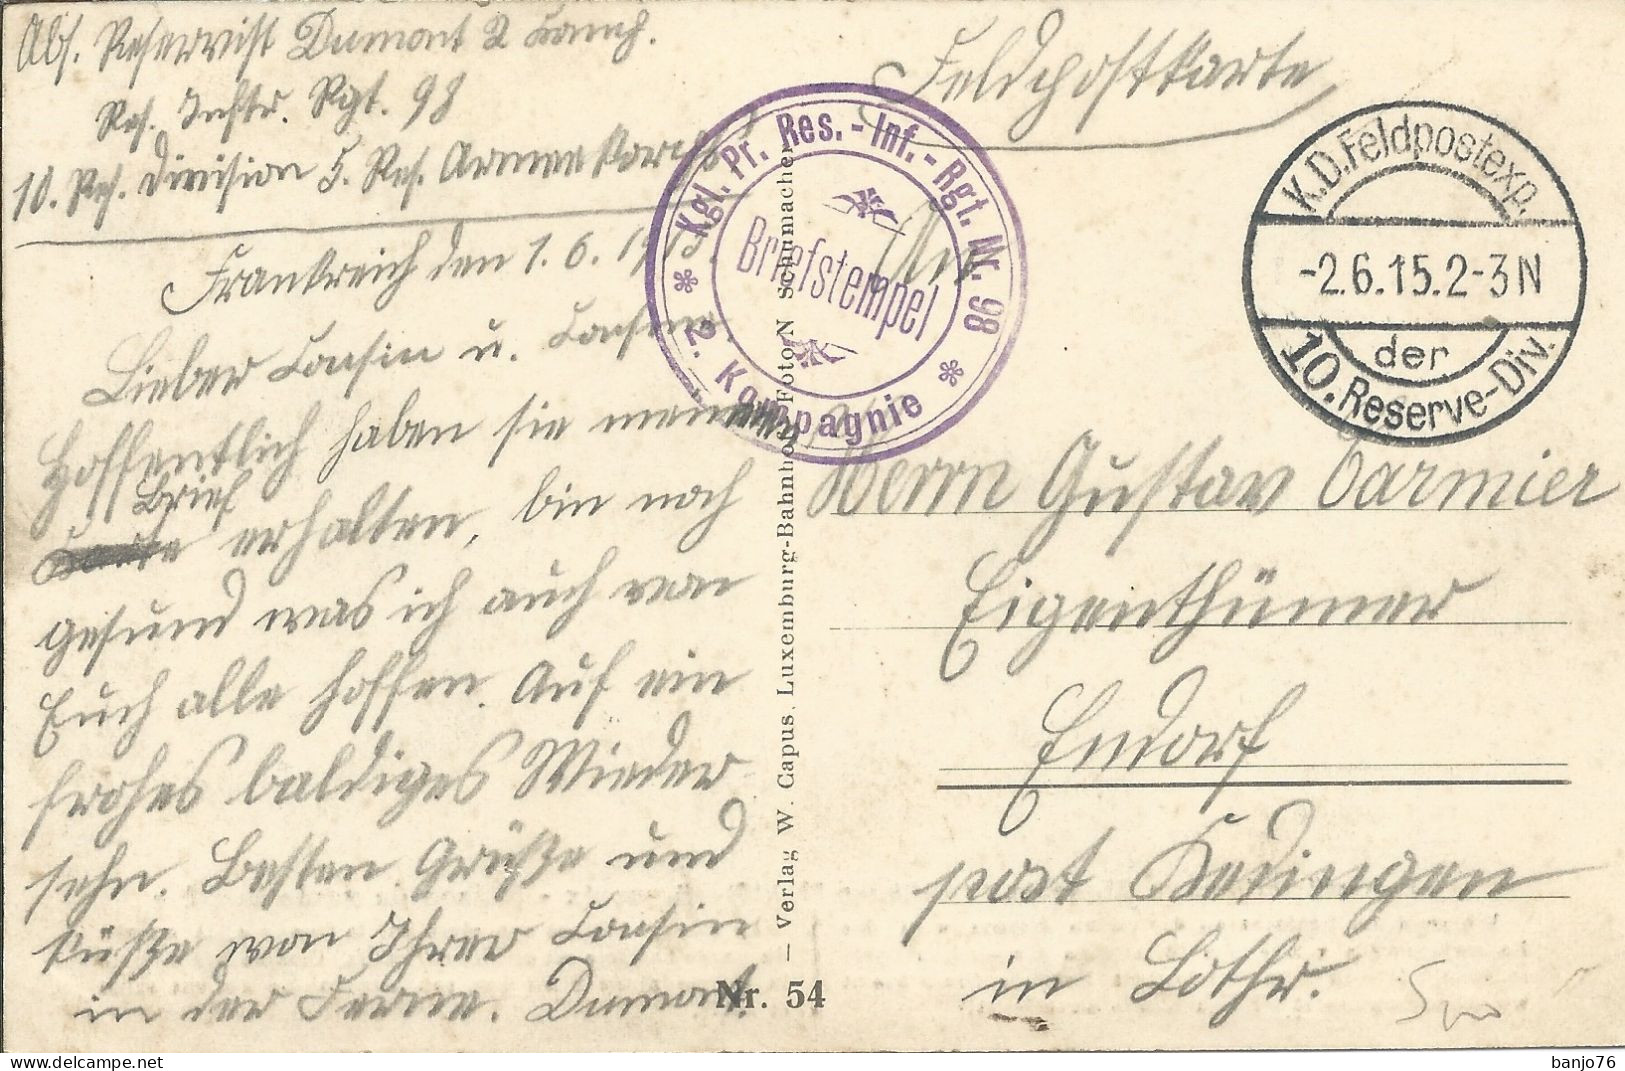 Abs. Reservist Dumont 2 Komp.
Res. Inftr. Rgt. 98
10. Res. Division 5. Res. Armee Korps
Feldpostkarte
Frankreich den 1. 6. 1915.
Lieber Cousin u. Cousine
Hoffentlich haben sie meinen
Brief
Karte erhalten, bin noch
gesund was ich auch von
Euch alle hoffen. Auf ein
frohes baldiges Wieder
sehn. Besten Grüße und
küße von Ihrer Cousin
in der Ferne. Dumont.
Kgl. Pr. Res.-Inf.-Rgt. Nr. 98
Briefstempel
* 2. Kompagnie *
K.D. Feldpostexp.
-2.6.15.2-3N
der
10. Reserve-Div.
An
Herrn Gustav Carmier
Eigenthümer
Endorf
post Kedingen
in Lothr.
— Verlag W. Capus, Luxemburg-Bahnhof, Foto N Schumacher
Nr. 54
banjo76